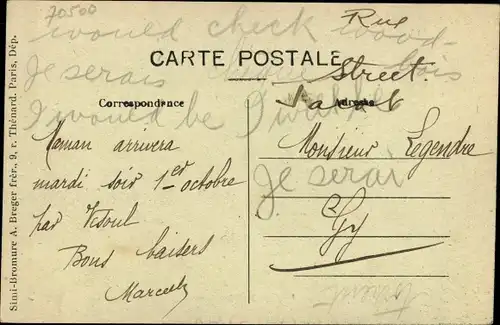 70500
Rue
would check wood
CARTE POSTALE
Street.
Je serais
bois
Correspondance
Adresse
I would be
Maman arrivera
mardi soir 1er octobre
par Vesoul
Bons baisers
Monsieur Legendre
Je serai
Gy
Simi-Bromure A. Breger frèr., 9, r. Thénard. Paris, Dép.